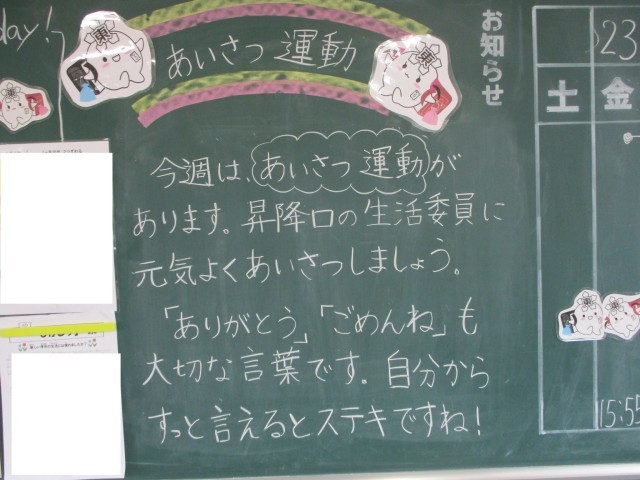 day!
あいさつ 運動
お知らせ
23
土 金
今週は、あいさつ運動が
あります。昇降口の生活委員に
元気よくあいさつしましょう。
「ありがとう」「ごめんね」も
大切な言葉です。自分から
すっと言えるとステキですね!
15:55